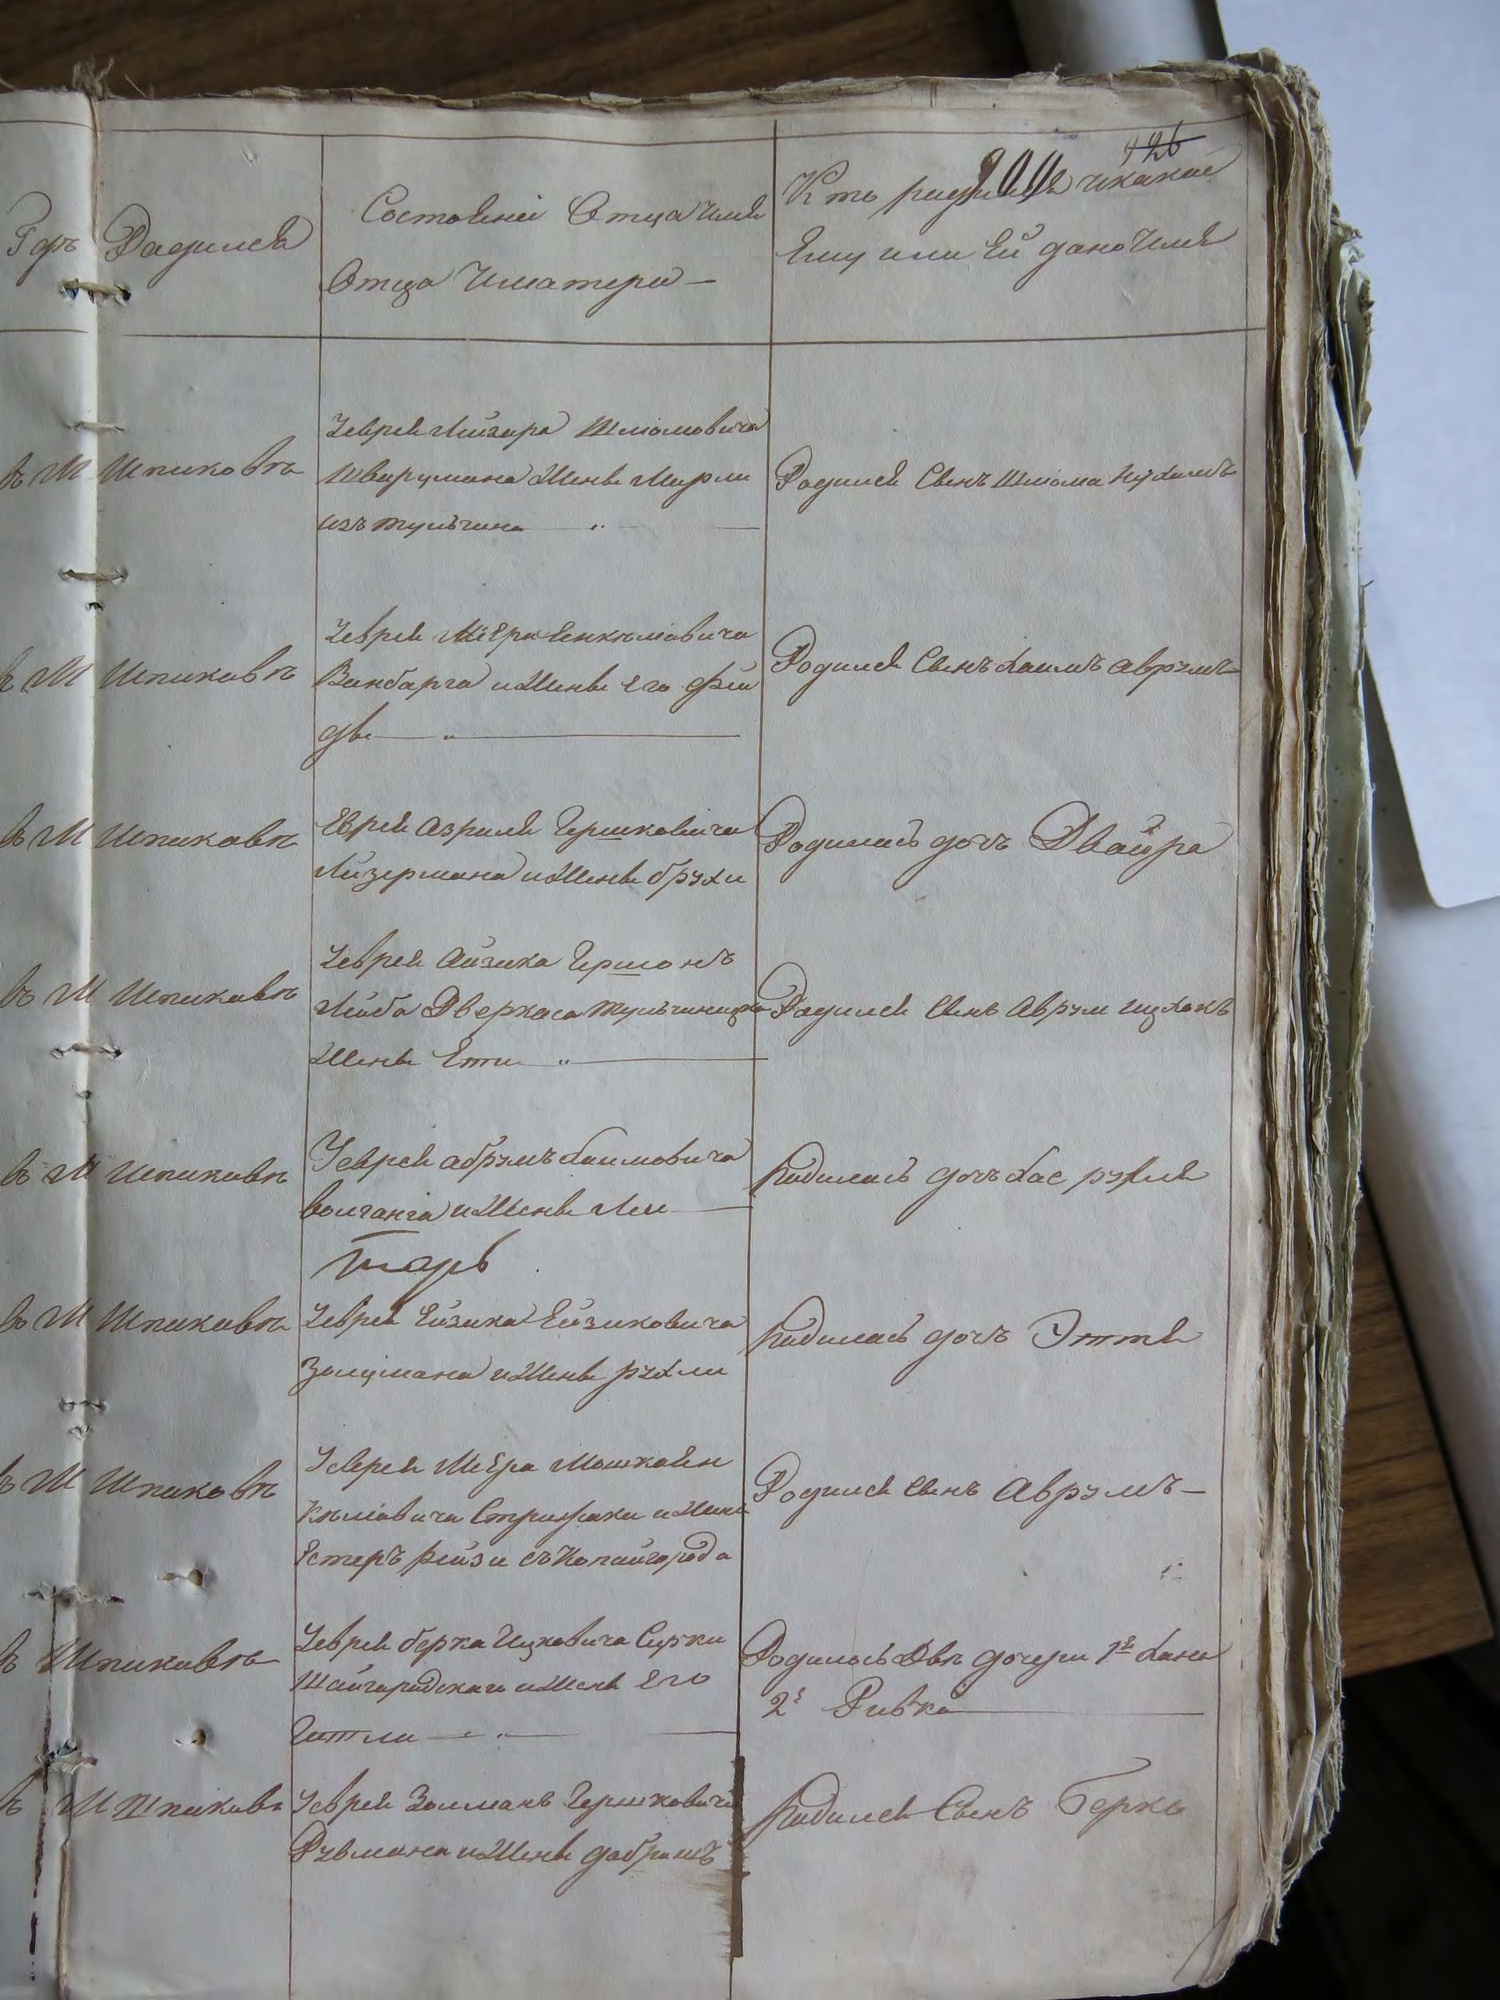 926
Гдѣ Радилсѧ
Состояніе Отца Имя
Отца Иматери —
Кто радился икакое
Ему или Ей дано Имя
въ М Шпиковѣ
Уеврея Лейзера Шлиомовича
Шварцмана Жены Мирли
изъ тульчина — " —
Родился Сынъ Шлиома Нухимъ
въ М Шпиковѣ
Уеврея Меера Янкилиовича
Ванбарга и Жены его Фей
ды — " —
Родился Сынъ Хаимъ Аврумъ
въ М Шпиковѣ
Еврея Азриля Гершковича
Лизермана и Жены брухи
Родилась дочъ Двойра
въ М Шпиковѣ
Уеврея Айзика Гершонъ
Лейба Дверкаса
Жены Ети — " —
Радился Сынъ Аврум Ицхокъ
въ М Шпиковѣ
Уеврея абрумъ Хаимовича
и Жены Леи —
Радилась дочъ Хас рухля
въ М Шпиковѣ
Уеврея Ейзика Ейзиковича
Золцмана и Жены рухли
Радилась дочъ Эття
въ М Шпиковѣ
Уеврея Меера Мошка Ян
кѣлиовича Стрижаки и Жены
Естеръ рейзи съ Копайгорода
Родился Сынъ Аврумъ —
въ Шпиковѣ
Уеврея берка Ицковича Сирки
Шайгородскаго и Жены Его
Гитли — " —
Родилось Двѣ дочери 1я Хана
2я Ривка —
въ М Шпиковѣ
Уеврея Золманъ Гершковича
Рувмана и Жены добришъ
Радился Сынъ Берко